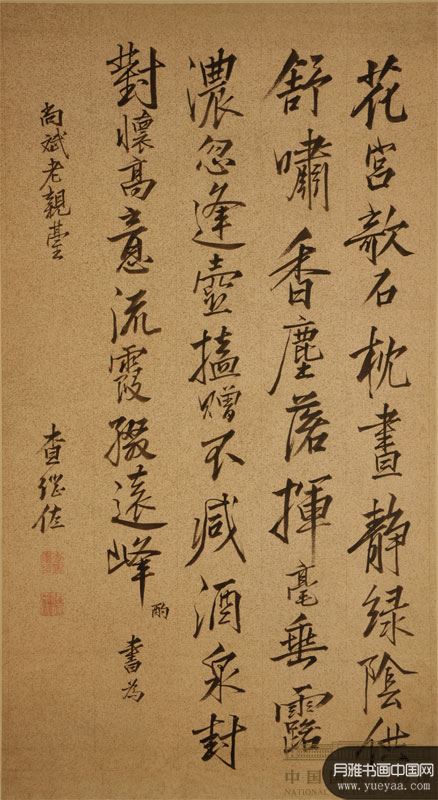 花宮欹石枕晝靜綠陰供
舒嘯香塵落揮毫垂露
濃忽逢壺榼贈不減酒泉封
對懷高意流霞綴遠峰酌 書為
尚斌老親臺
查繼佐
中国
NATIONAL
月雅书画中国网
www.yueyaa.com